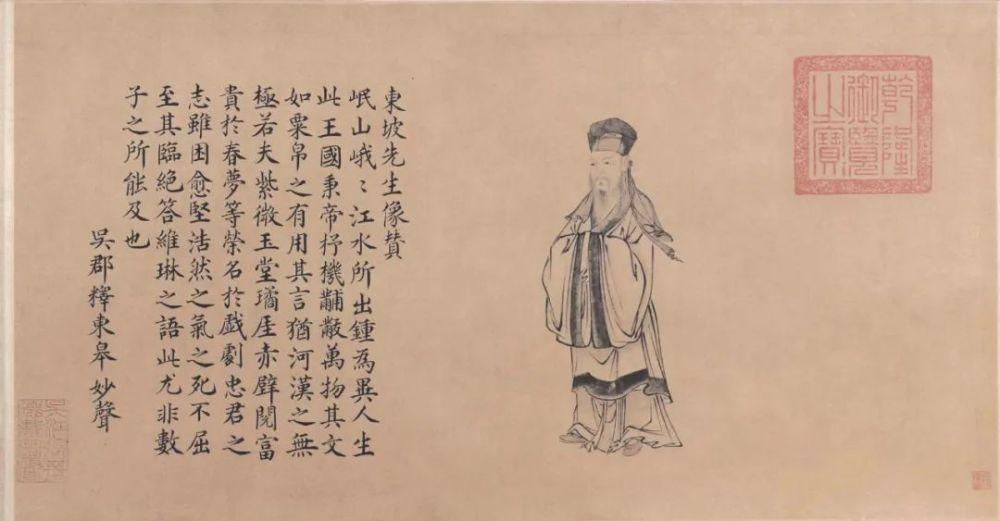 乾隆
御覽
之寶
東坡先生像賛
岷山峨〻江水所出鍾為異人生
此王國秉帝杼機黼黻萬物其文
如粟帛之有用其言猶河漢之無
極若夫紫微玉堂璚厓赤壁閱富
貴於春夢等榮名於戲劇忠君之
志雖困愈堅浩然之氣之死不屈
至其臨絕答維琳之語此尤非數
子之所能及也
吳郡釋東皋妙聲